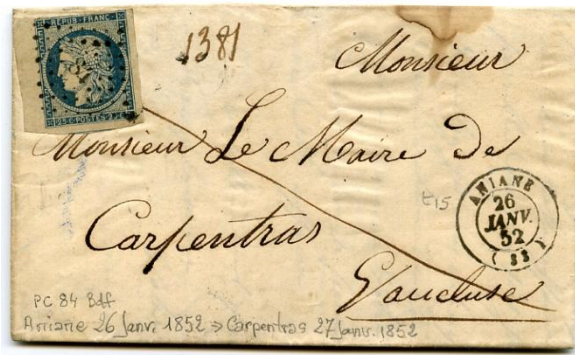 REPUB. FRANC.
84
25 C. POSTES 25 C.
1381
Monsieur
Monsieur Le Maire de
Carpentras
Vaucluse
ANIANE
26
JANV.
52
(33)
t15
PC 84 Bdf
Aniane 26 Janv. 1852 → Carpentras 27 Janv. 1852